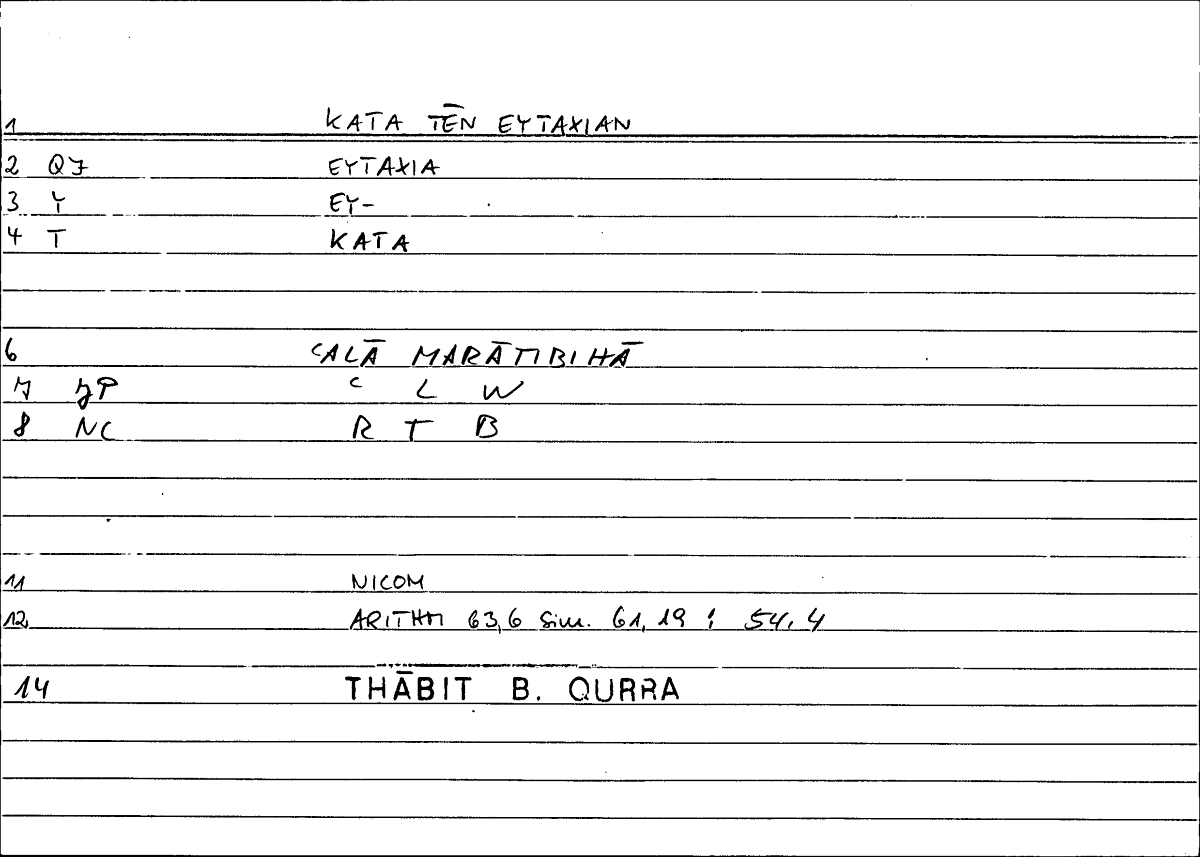 1 KATA TĒN EYTAXIAN
2 QJ EYTAXIA
3 Y EY-
4 T KATA
6 ʿALĀ MARĀTIBIHĀ
7 ʿ L W
8 NC R T B
11 NICOM
12 ARITHM 63,6 Sim. 61,19 : 54,4
14 THĀBIT B. QURRA